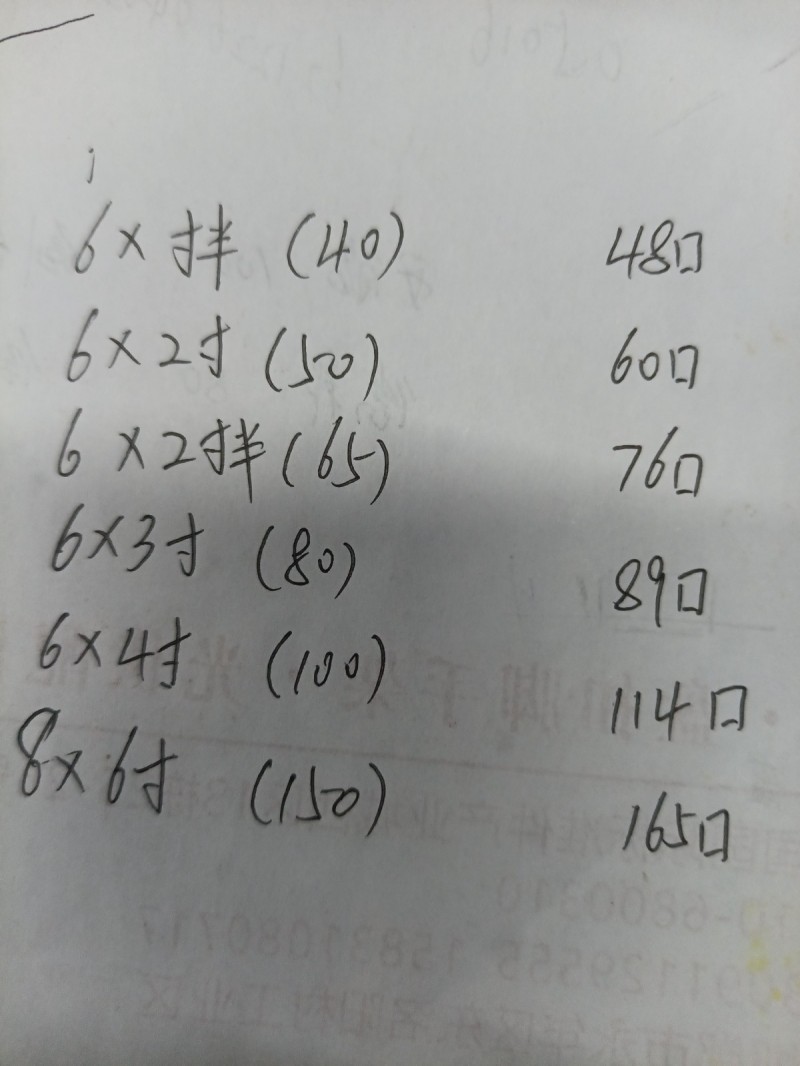 6×寸半 (40) 48口
6×2寸 (50) 60口
6×2寸半 (65) 76口
6×3寸 (80) 89口
6×4寸 (100) 114口
8×6寸 (150) 165口